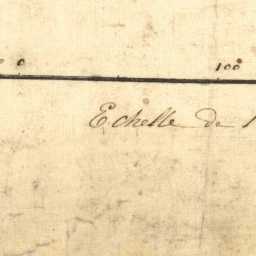 0 100
Echelle de